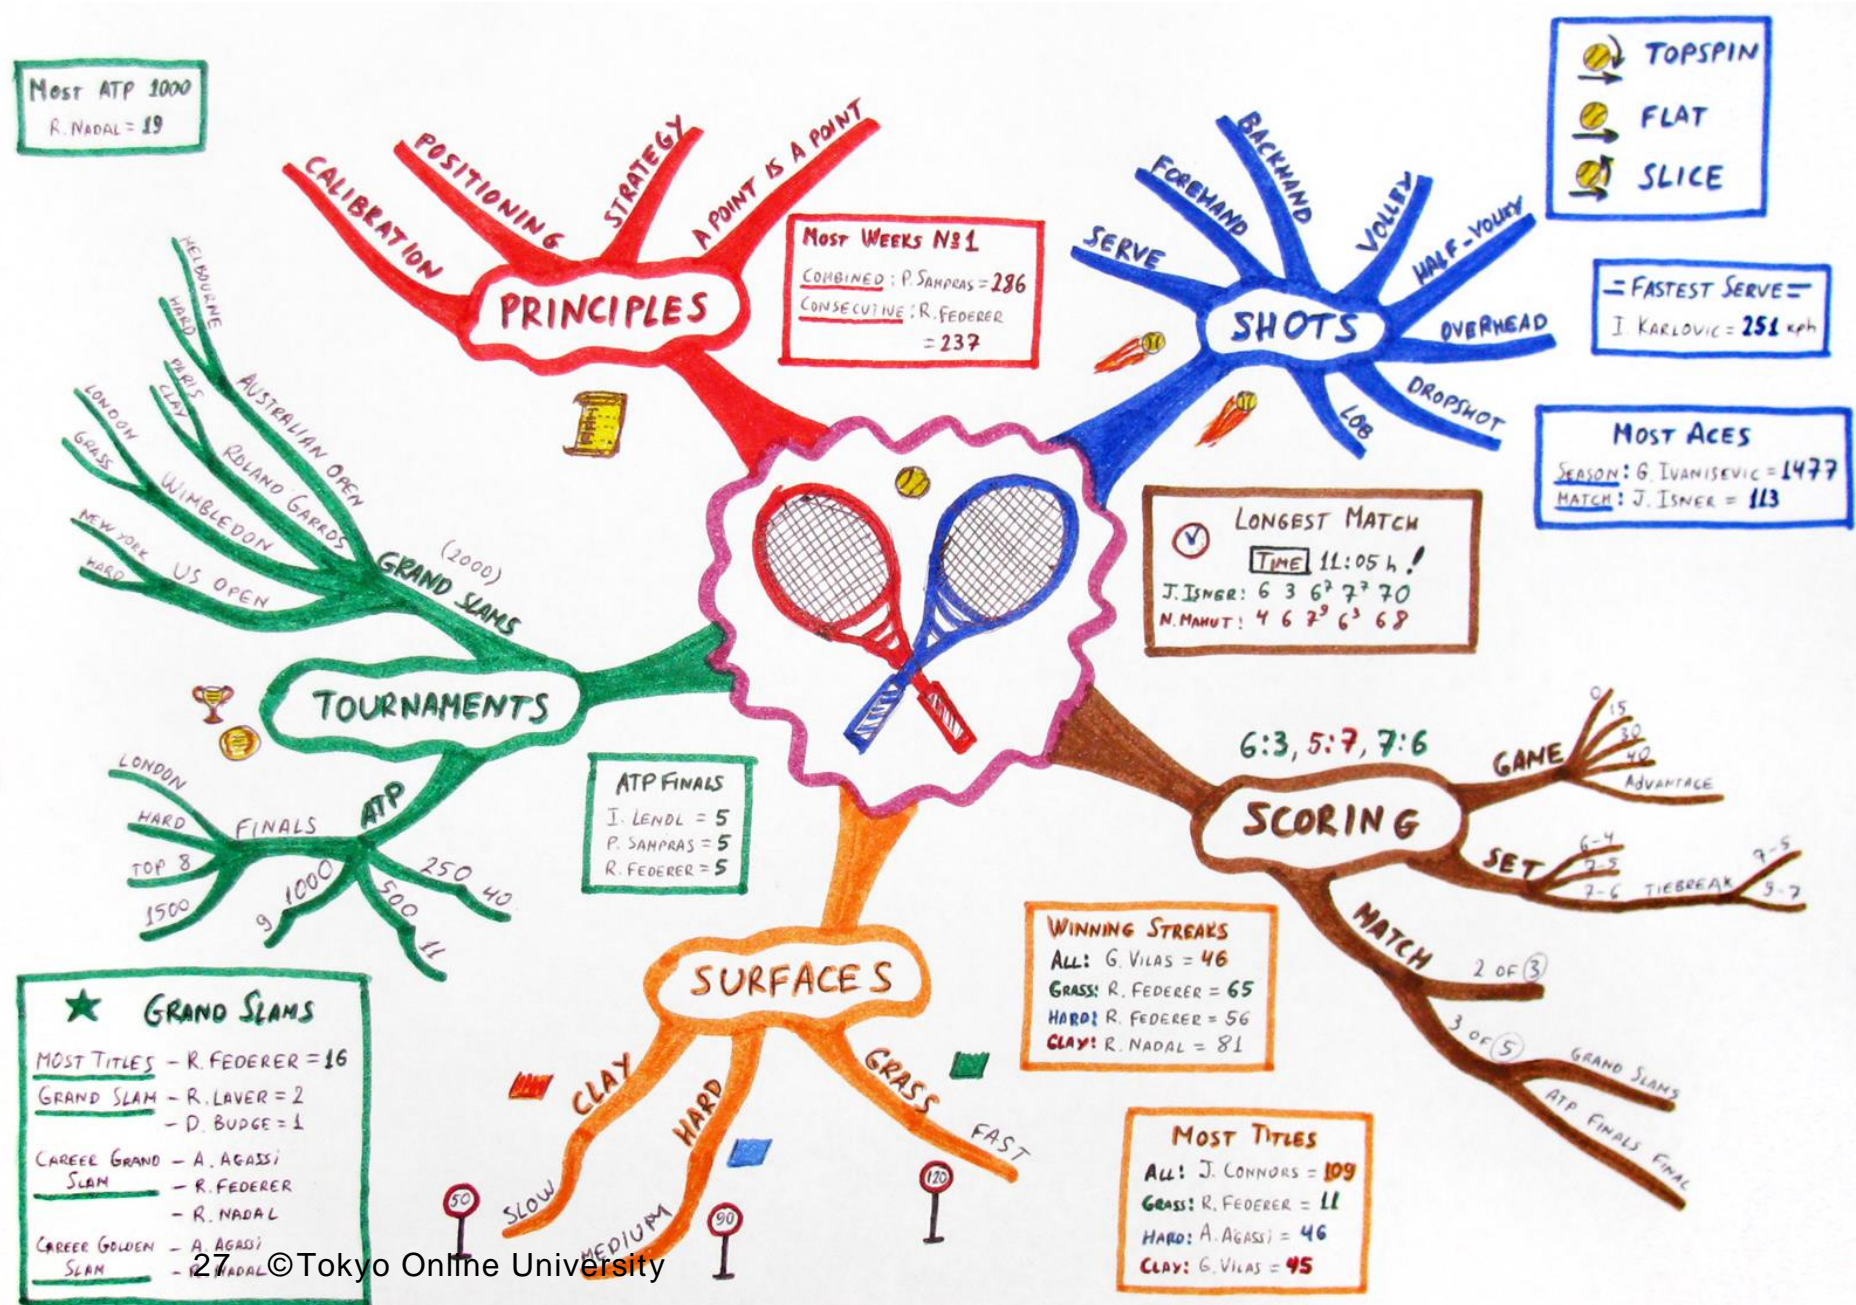 Most ATP 1000
R. NADAL = 19
CALIBRATION
POSITIONING
STRATEGY
A POINT IS A POINT
PRINCIPLES
MOST WEEKS Nº1
COMBINED : P. SAMPRAS = 286
CONSECUTIVE : R. FEDERER
= 237
SERVE
FOREHAND
BACKHAND
VOLLEY
HALF-VOLLEY
OVERHEAD
DROPSHOT
LOB
SHOTS
TOPSPIN
FLAT
SLICE
= FASTEST SERVE =
I. KARLOVIC = 251 kph
MOST ACES
SEASON: G. IVANISEVIC = 1477
MATCH: J. ISNER = 113
LONGEST MATCH
TIME 11:05 h !
J. ISNER: 6 3 6⁷ 7⁷ 70
N. MAHUT: 4 6 7⁹ 6³ 68
MELBOURNE
HARD
AUSTRALIAN OPEN
PARIS
CLAY
ROLAND GARROS
LONDON
GRASS
WIMBLEDON
NEW YORK
HARD
US OPEN
(2000)
GRAND SLAMS
TOURNAMENTS
ATP
FINALS
LONDON
HARD
TOP 8
1500
1000
9
500
11
250
40
ATP FINALS
I. LENDL = 5
P. SAMPRAS = 5
R. FEDERER = 5
6:3, 5:7, 7:6
SCORING
GAME
0
15
30
40
ADVANTAGE
SET
6-4
7-5
7-6
TIEBREAK
7-5
9-7
MATCH
2 OF 3
3 OF 5
GRAND SLAMS
ATP FINALS FINAL
SURFACES
CLAY
SLOW
HARD
MEDIUM
GRASS
FAST
50
90
120
WINNING STREAKS
ALL: G. VILAS = 46
GRASS: R. FEDERER = 65
HARD: R. FEDERER = 56
CLAY: R. NADAL = 81
MOST TITLES
ALL: J. CONNORS = 109
GRASS: R. FEDERER = 11
HARD: A. AGASSI = 46
CLAY: G. VILAS = 45
GRAND SLAMS
MOST TITLES - R. FEDERER = 16
GRAND SLAM - R. LAVER = 2
- D. BUDGE = 1
CAREER GRAND SLAM - A. AGASSI
- R. FEDERER
- R. NADAL
CAREER GOLDEN SLAM - A. AGASSI
- R. NADAL
27 ©Tokyo Online University